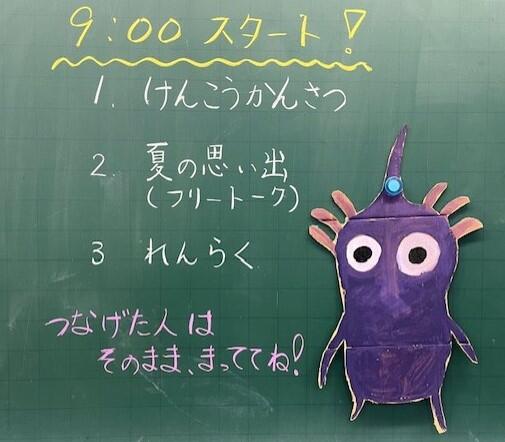 9:00 スタート!
1. けんこうかんさつ
2. 夏の思い出
(フリートーク)
3 れんらく
つなげた人は
そのまま、まっててね!